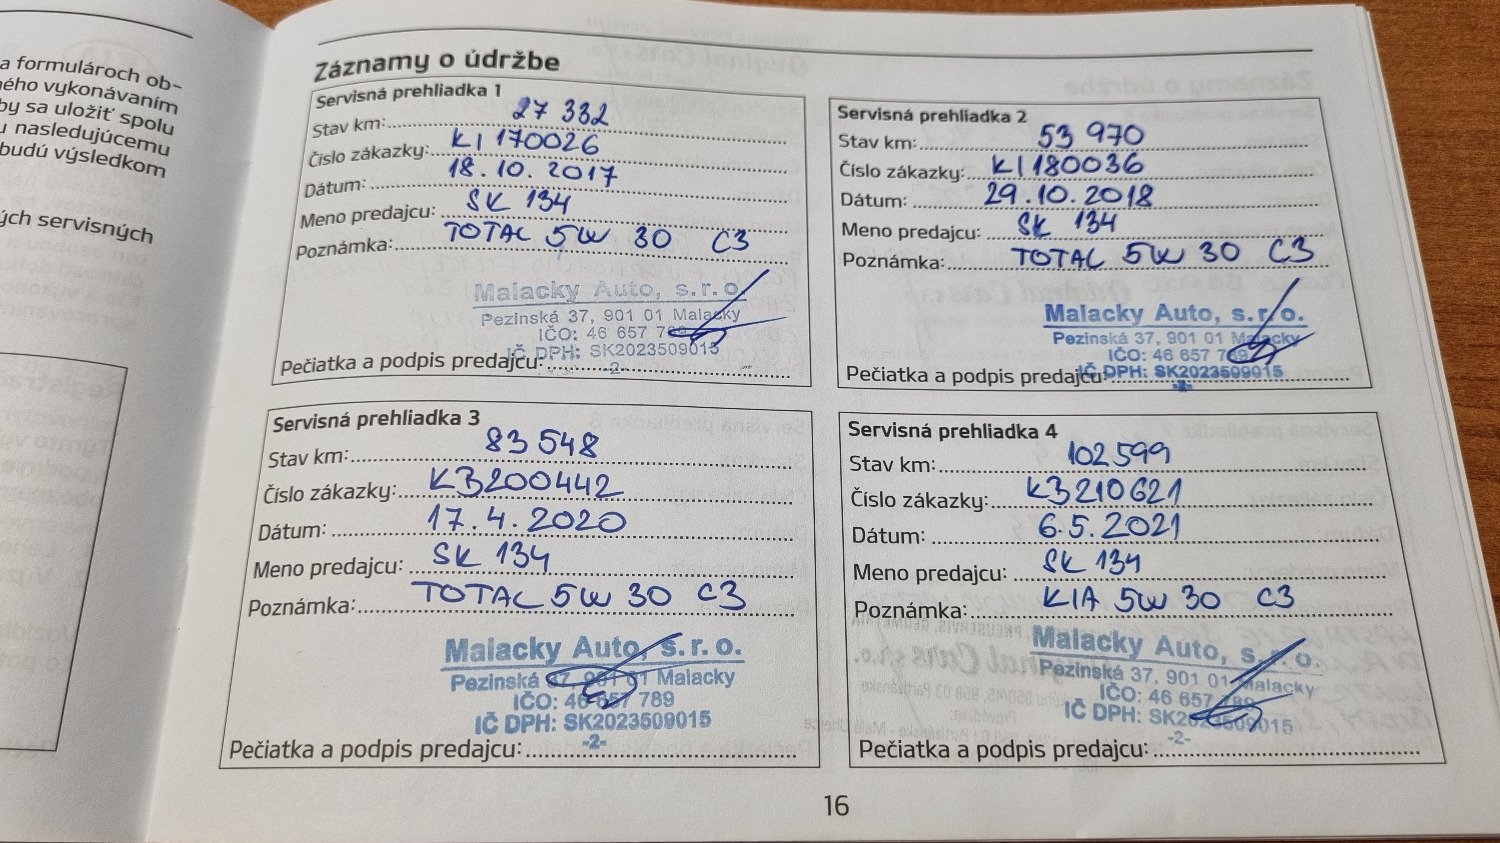 a formulároch ob-
ného vykonávaním
by sa uložiť spolu
u nasledujúcemu
budú výsledkom
ých servisných
Záznamy o údržbe
Servisná prehliadka 1
Stav km: 27 332
Číslo zákazky: KI 170026
Dátum: 18.10.2017
Meno predajcu: SK 134
Poznámka: TOTAL 5W 30 C3
Malacky Auto, s.r.o.
Pezinská 37, 901 01 Malacky
IČO: 46 657 789
IČ DPH: SK2023509015
Pečiatka a podpis predajcu:
-2-
Servisná prehliadka 2
Stav km: 53 970
Číslo zákazky: KI 180036
Dátum: 29.10.2018
Meno predajcu: SK 134
Poznámka: TOTAL 5W 30 C3
Malacky Auto, s.r.o.
Pezinská 37, 901 01 Malacky
IČO: 46 657 789
IČ DPH: SK2023509015
Pečiatka a podpis predajcu:
-2-
Servisná prehliadka 3
Stav km: 83 548
Číslo zákazky: K3200442
Dátum: 17.4.2020
Meno predajcu: SK 134
Poznámka: TOTAL 5W 30 C3
Malacky Auto, s.r.o.
Pezinská 37, 901 01 Malacky
IČO: 46 657 789
IČ DPH: SK2023509015
-2-
Pečiatka a podpis predajcu:
Servisná prehliadka 4
Stav km: 102 599
Číslo zákazky: K3210621
Dátum: 6.5.2021
Meno predajcu: SK 134
Poznámka: KIA 5W 30 C3
Malacky Auto, s.r.o.
Pezinská 37, 901 01 Malacky
IČO: 46 657 789
IČ DPH: SK2023509015
-2-
Pečiatka a podpis predajcu:
16